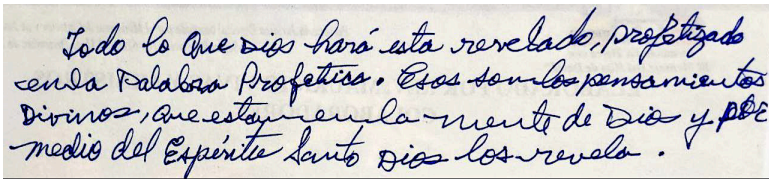 Todo lo que Dios hará esta revelado, profetizado
en la Palabra Profetica. Esos son los pensamientos
Divinos, que estan en la mente de Dios y por
medio del Espiritu Santo Dios los revela.